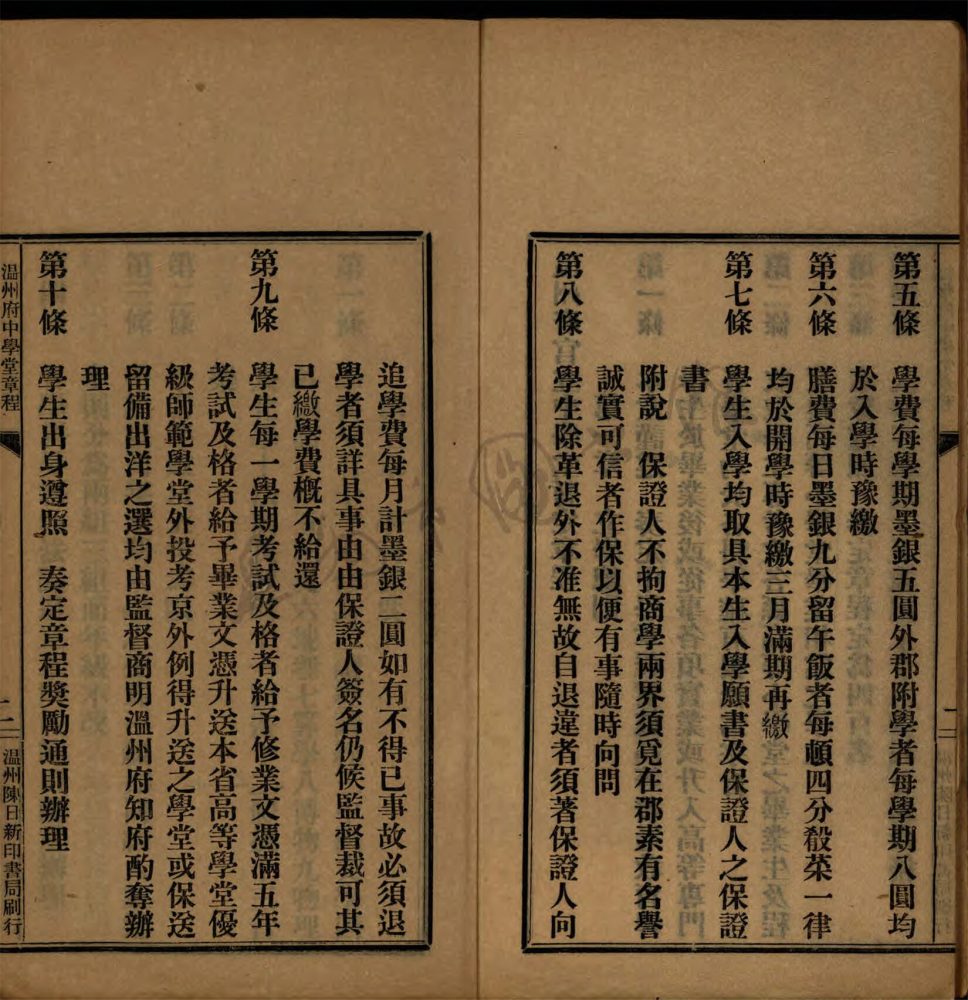 第五條　學費每學期墨銀五圓外郡附學者每學期八圓均
於入學時豫繳
第六條　膳費每日墨銀九分留午飯者每頓四分殽菜一律
均於開學時豫繳三月滿期再繳
第七條　學生入學均取具本生入學願書及保證人之保證
書
附說　保證人不拘商學兩界須覓在郡素有名譽
誠實可信者作保以便有事隨時向問
第八條　學生除革退外不准無故自退違者須著保證人向
追學費每月計墨銀二圓如有不得已事故必須退
學者須詳具事由由保證人簽名仍候監督裁可其
已繳學費概不給還
第九條　學生每一學期考試及格者給予修業文憑滿五年
考試及格者給予畢業文憑升送本省高等學堂優
級師範學堂外投考京外例得升送之學堂或保送
留備出洋之選均由監督商明溫州府知府酌奪辦
理
第十條　學生出身遵照　奏定章程獎勵通則辦理
温州府中學堂章程
二
温州陳日新印書局刷行